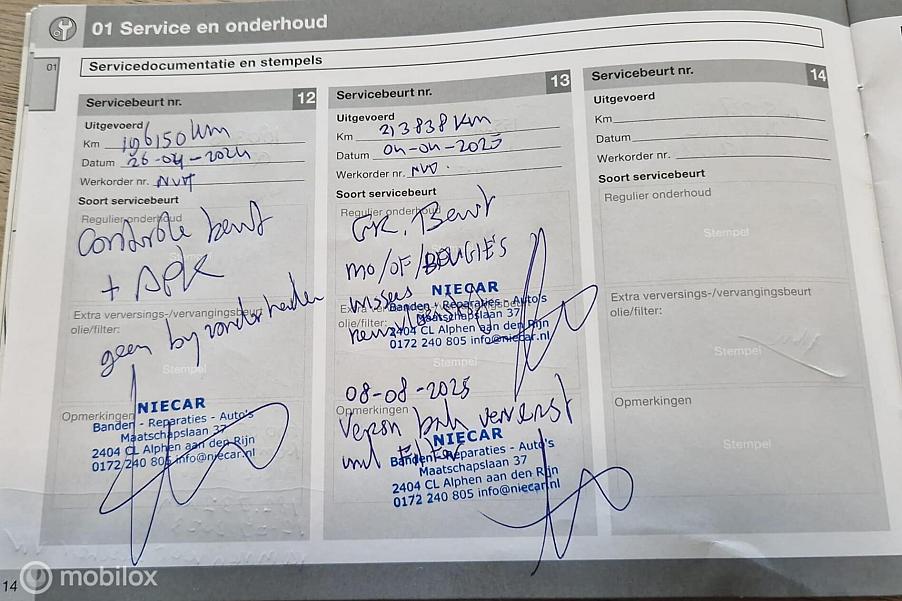 01 Service en onderhoud
01
Servicedocumentatie en stempels
Servicebeurt nr. 12
Uitgevoerd
Km 196150 km
Datum 26-04-2024
Werkorder nr. NVT
Soort servicebeurt
Regulier onderhoud
Controle beurt
+ APK
Extra verversings-/vervangingsbeurt
olie/filter:
geen bijzonderheden
Stempel
Opmerkingen
NIECAR
Banden - Reparaties - Auto's
Maatschapslaan 37
2404 CL Alphen aan den Rijn
0172 240 805 info@niecar.nl
Servicebeurt nr. 13
Uitgevoerd
Km 213838 km
Datum 04-04-2025
Werkorder nr. NVT.
Soort servicebeurt
Regulier onderhoud
GR. Beurt
MO/OF/BOUGIES
wissers
NIECAR
Banden - Reparaties - Auto's
Maatschapslaan 37
2404 CL Alphen aan den Rijn
0172 240 805 info@niecar.nl
olie/filter:
Stempel
08-08-2025
Opmerkingen
bak ververst
NIECAR
Banden - Reparaties - Auto's
Maatschapslaan 37
2404 CL Alphen aan den Rijn
0172 240 805 info@niecar.nl
Servicebeurt nr. 14
Uitgevoerd
Km
Datum
Werkorder nr.
Soort servicebeurt
Regulier onderhoud
Stempel
Extra verversings-/vervangingsbeurt
olie/filter:
Stempel
Opmerkingen
Stempel
14
mobilox